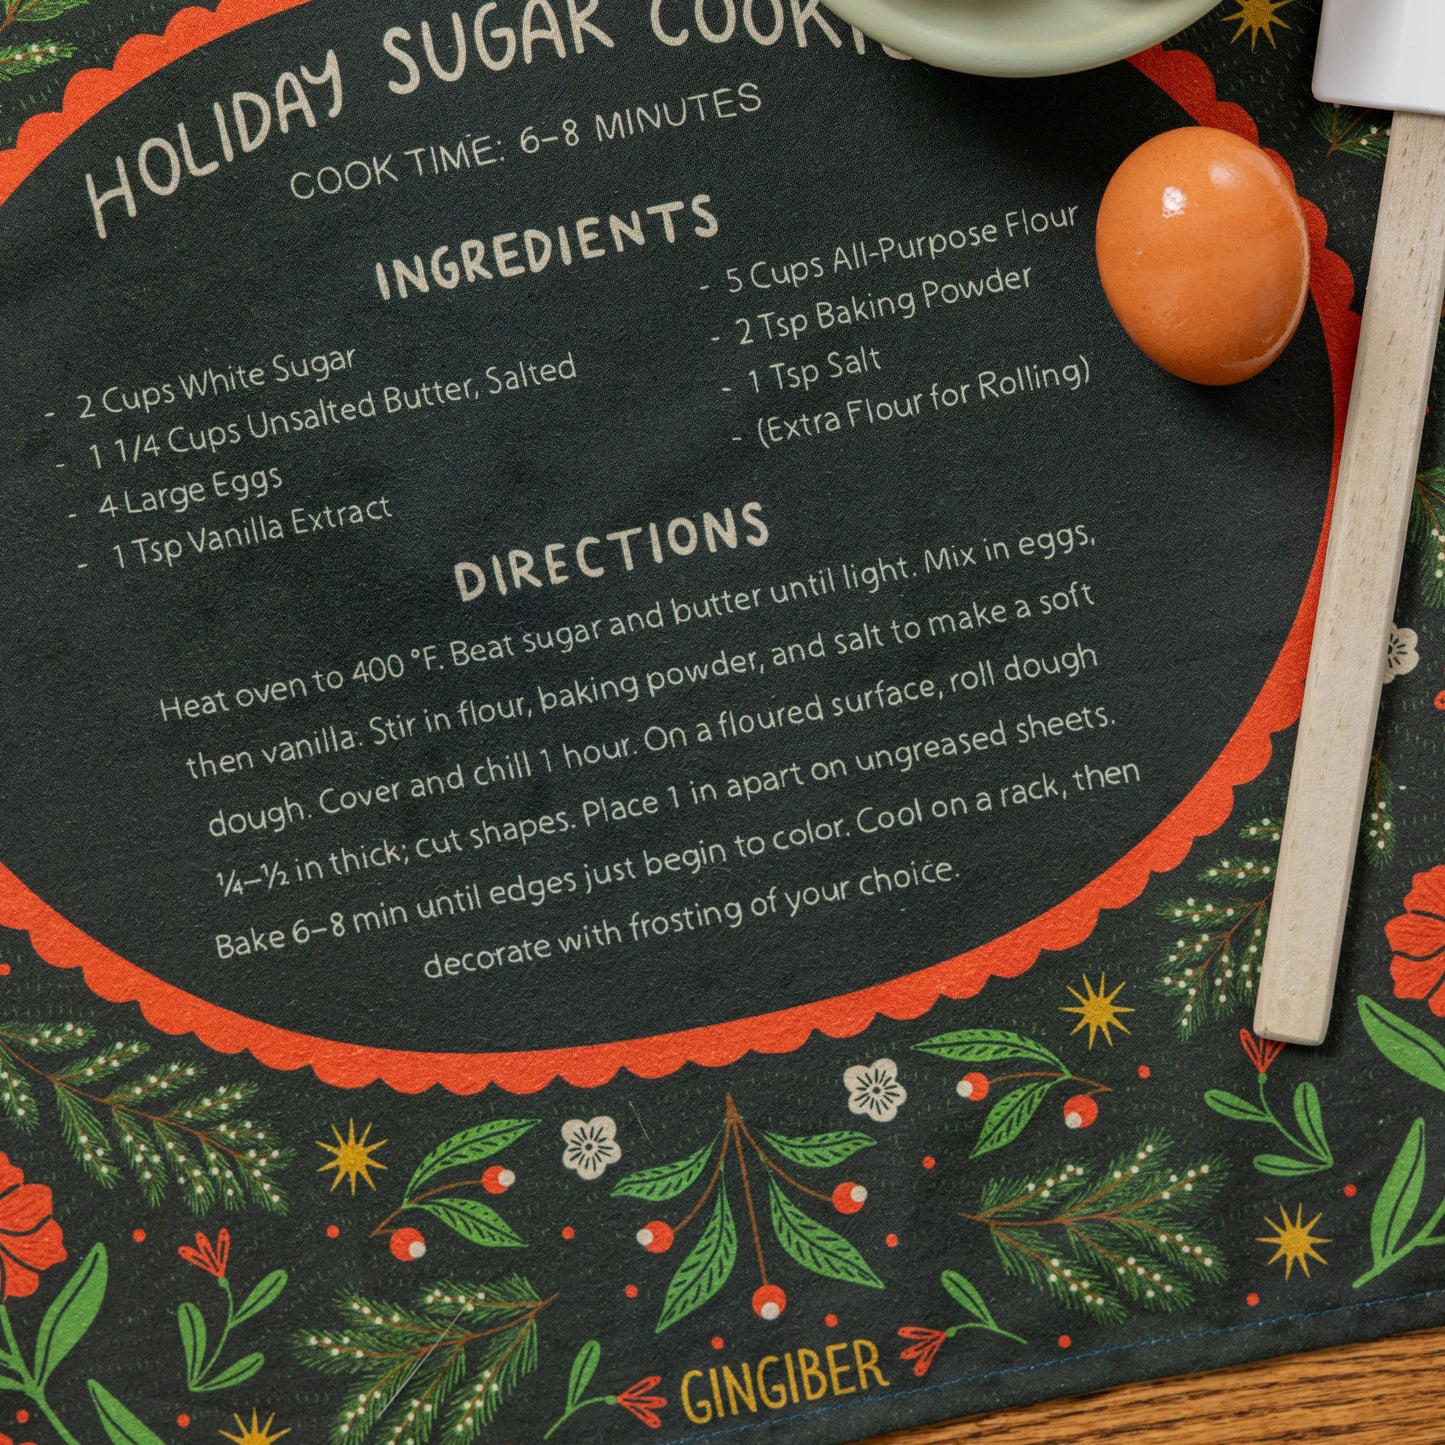 HOLIDAY SUGAR
COOK TIME: 6-8 MINUTES
INGREDIENTS
- 2 Cups White Sugar
- 1 1/4 Cups Unsalted Butter, Salted
- 4 Large Eggs
- 1 Tsp Vanilla Extract
- 5 Cups All-Purpose Flour
- 2 Tsp Baking Powder
- 1 Tsp Salt
- (Extra Flour for Rolling)
DIRECTIONS
Heat oven to 400 °F. Beat sugar and butter until light. Mix in eggs,
then vanilla. Stir in flour, baking powder, and salt to make a soft
dough. Cover and chill 1 hour. On a floured surface, roll dough
¼–½ in thick; cut shapes. Place 1 in apart on ungreased sheets.
Bake 6–8 min until edges just begin to color. Cool on a rack, then
decorate with frosting of your choice.
GINGIBER